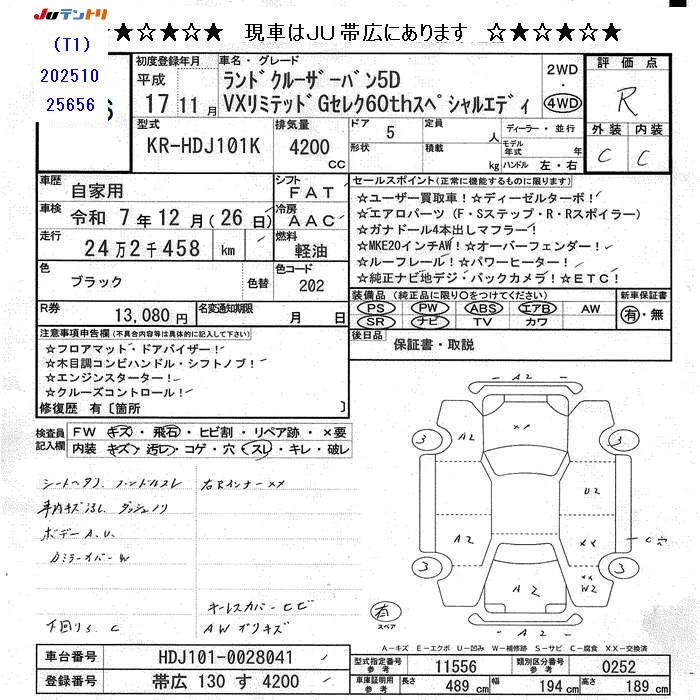 JUテントリ
★☆★☆★ 現車はJU帯広にあります ☆★☆★☆★
(T1)
202510
25656
S
初度登録年月
平成
17 11月
車名・グレード
ランドクルーザーバン5D
VXリミテッドGセレク60thスペシャルエディ
2WD
・
4WD
評価点
R
外装 内装
C C
型式
KR-HDJ101K
排気量
4200
CC
ドア 5
形状
定員 人
積載 kg
ディーラー・並行
モデル年式 年
ハンドル 左・右
車歴 自家用
シフト FAT
車検 令和 7年12月(26日)
冷房 AAC
走行 24万2千458 km
燃料 軽油
色 ブラック 色替
色コード 202
R券 13,080円
名変通知期限 月 日
セールスポイント(正常に機能するものに限ります)
☆ユーザー買取車!☆ディーゼルターボ!
☆エアロパーツ(F・Sステップ・R・Rスポイラー)
☆ガナドール4本出しマフラー!
☆MKE20インチAW!☆オーバーフェンダー!
☆ルーフレール!☆パワーヒーター!
☆純正ナビ地デジ・バックカメラ!☆ETC!
装備品(純正品に限り○をつけてください)
PS PW ABS エアB AW
SR ナビ TV カワ
新車保証書
有・無
後日品 保証書・取説
注意事項申告欄(不具合内容等は具体的に記入して下さい)
☆フロアマット・ドアバイザー!
☆木目調コンビハンドル・シフトノブ!
☆エンジンスターター!
☆クルーズコントロール!
修復歴 有〔箇所 〕
検査員記入欄
FW キズ・飛石・ヒビ割・リペア跡・×要
内装 キズ・汚レ・コゲ・穴・スレ・キレ・破レ
シートヘタリ ハンドルスレ
車内キズ汚レ ダッシュノリ
ボデーA.U.
カミラーカバーW
下回りS.C
右Rインナー××
キーレスカバーヒビ
AWガリキズ
A2
××
3 A2 3
U2
A2 ×× C穴
3 A2 ××W2 3
A2
有
スペア
A-キズ E-エクボ U-凹み W-補修跡 S-サビ C-腐食 XX-交換済
車台番号 HDJ101-0028041
登録番号 帯広 130 す 4200
型式指定番号参考 11556
類別区分番号参考 0252
車庫証明用参考 長さ 489 cm 幅 194 cm 高さ 189 cm